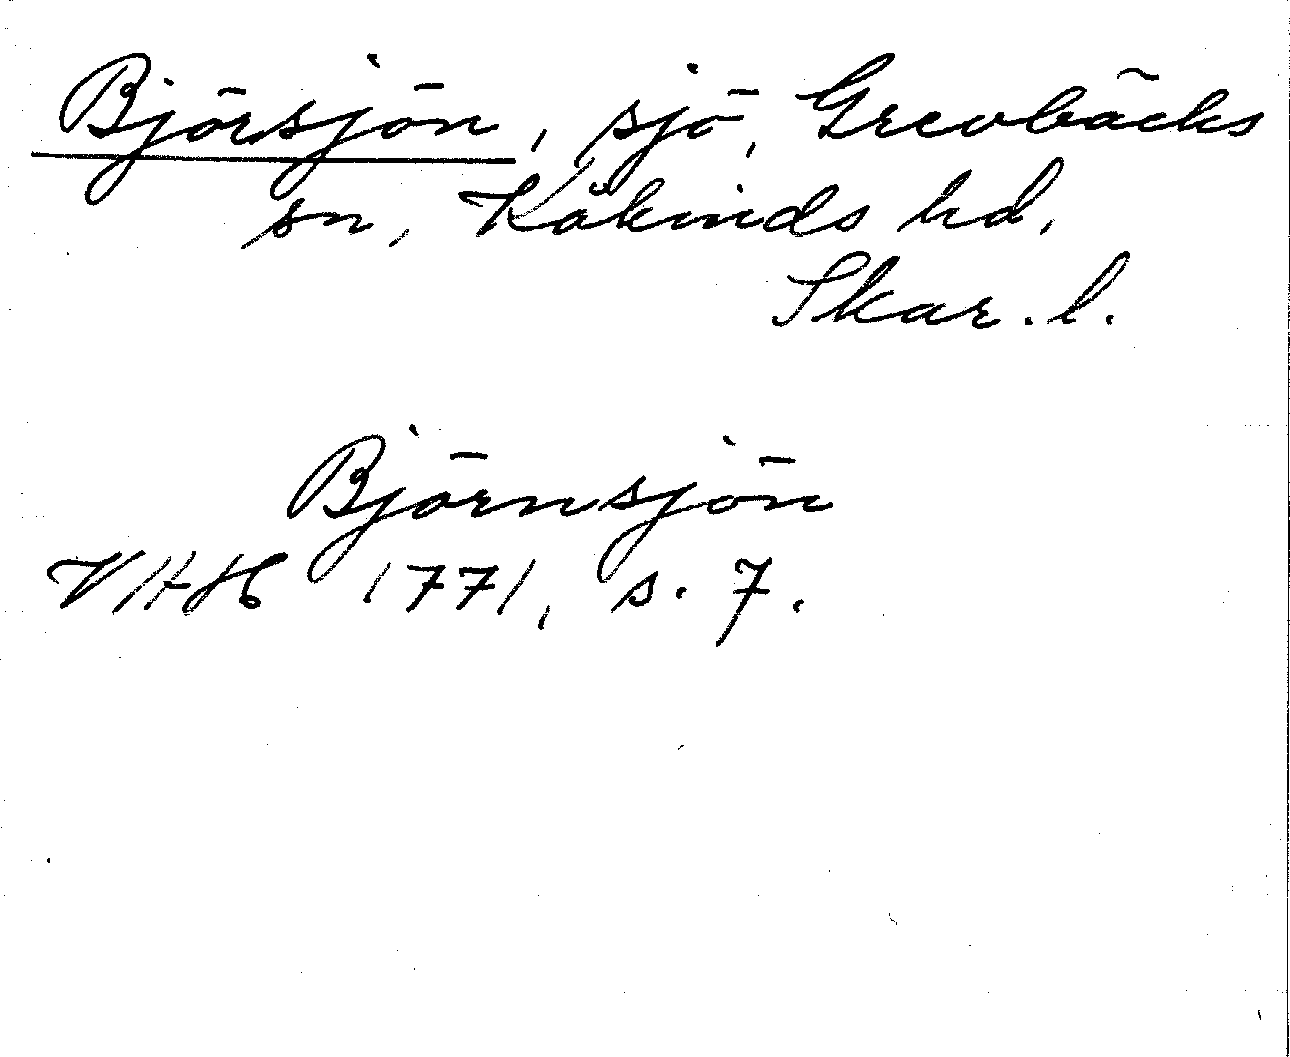 Björsjön, sjö, Grevbäcks
sn, Kåkinds hd,
Skar. l.
Björnsjön
VHAH 1771, s. 7.